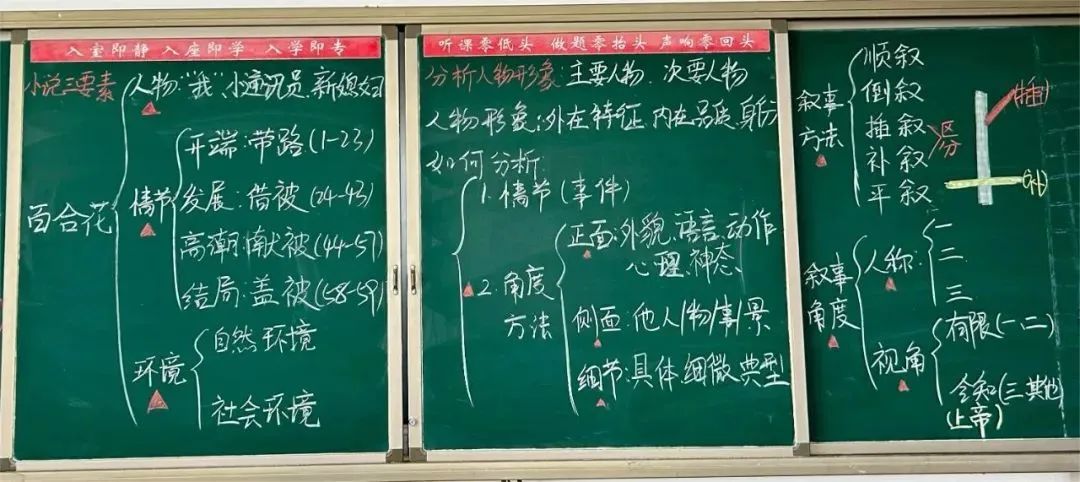 入室即静 入座即学 入学即专
小说三要素
百合花
人物:“我”、小通讯员、新媳妇
情节
开端:带路(1-23)
发展:借被(24-43)
高潮:献被(44-57)
结局:盖被(58-59)
环境
自然环境
社会环境
听课零低头 做题零抬头 声响零回头
分析人物形象:主要人物、次要人物
人物形象:外在特征、内在品质、身份
如何分析:
1.情节(事件)
2.角度
方法
正面:外貌、语言、动作
心理、神态
侧面:他人/物/事/景
细节:具体 细微 典型
叙事
方法
顺叙
倒叙
插叙
补叙
平叙
区分
(插)
(补)
叙事
角度
人称:
一
二
三
视角
有限(一、二)
全知(三、其他)
(上帝)